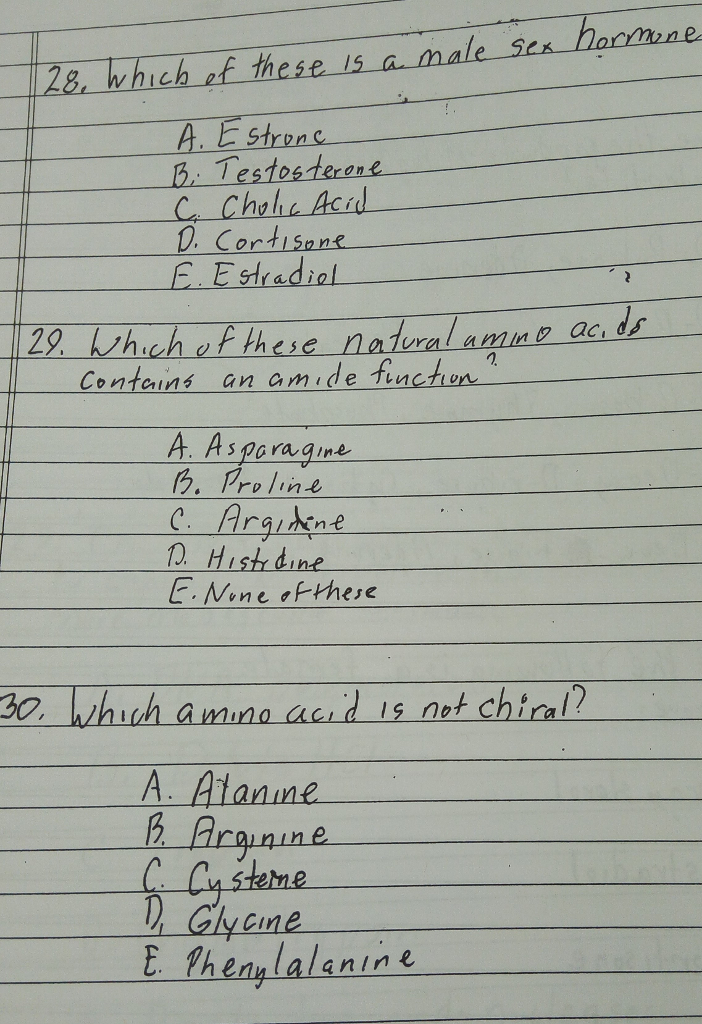 28. Which of these is a male sex hormone
A. Estrone
B. Testosterone
C. Cholic Acid
D. Cortisone
E. Estradiol
29. Which of these natural amino acids
contains an amide function?
A. Asparagine
B. Proline
C. Arginine
D. Histidine
E. None of these
30. Which amino acid is not chiral?
A. Alanine
B. Arginine
C. Cysteine
D. Glycine
E. Phenylalanine